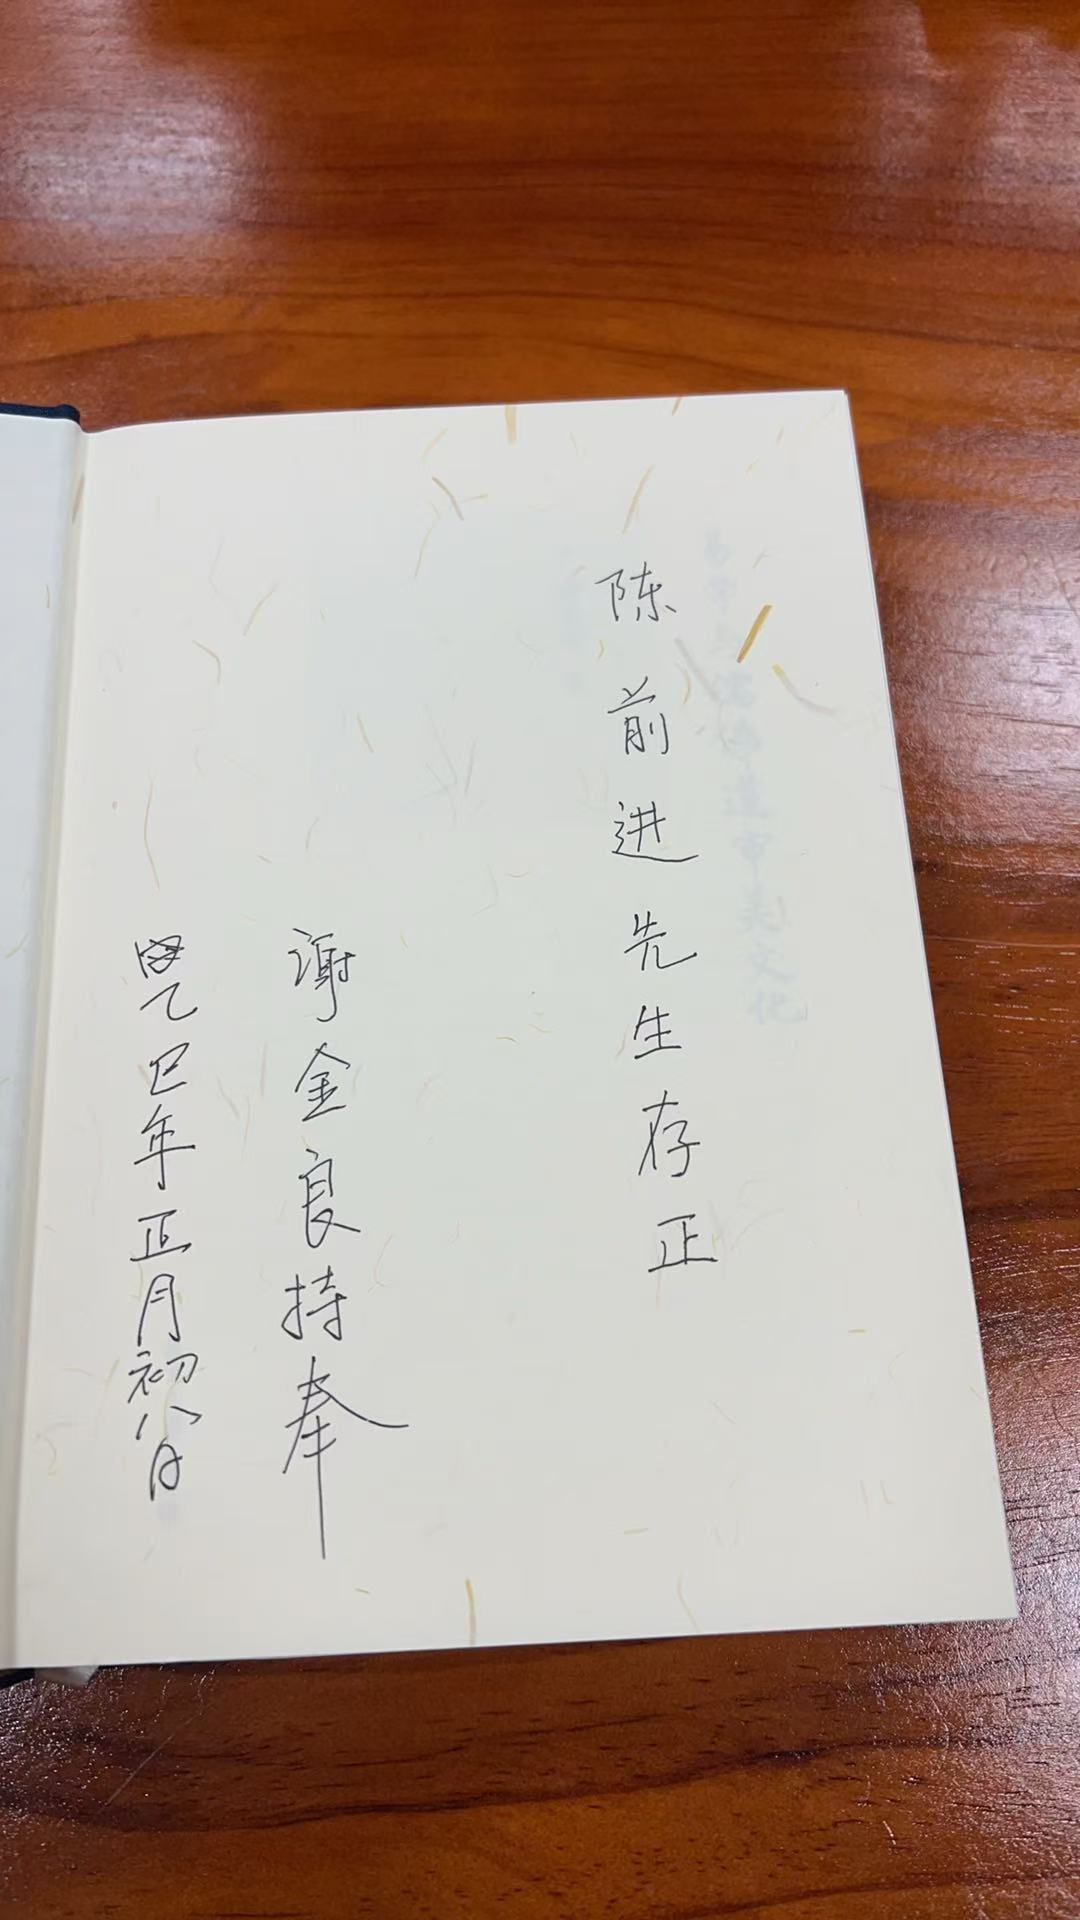 陈前进先生存正
谢金良持奉
乙巳年正月初八日
审美文化